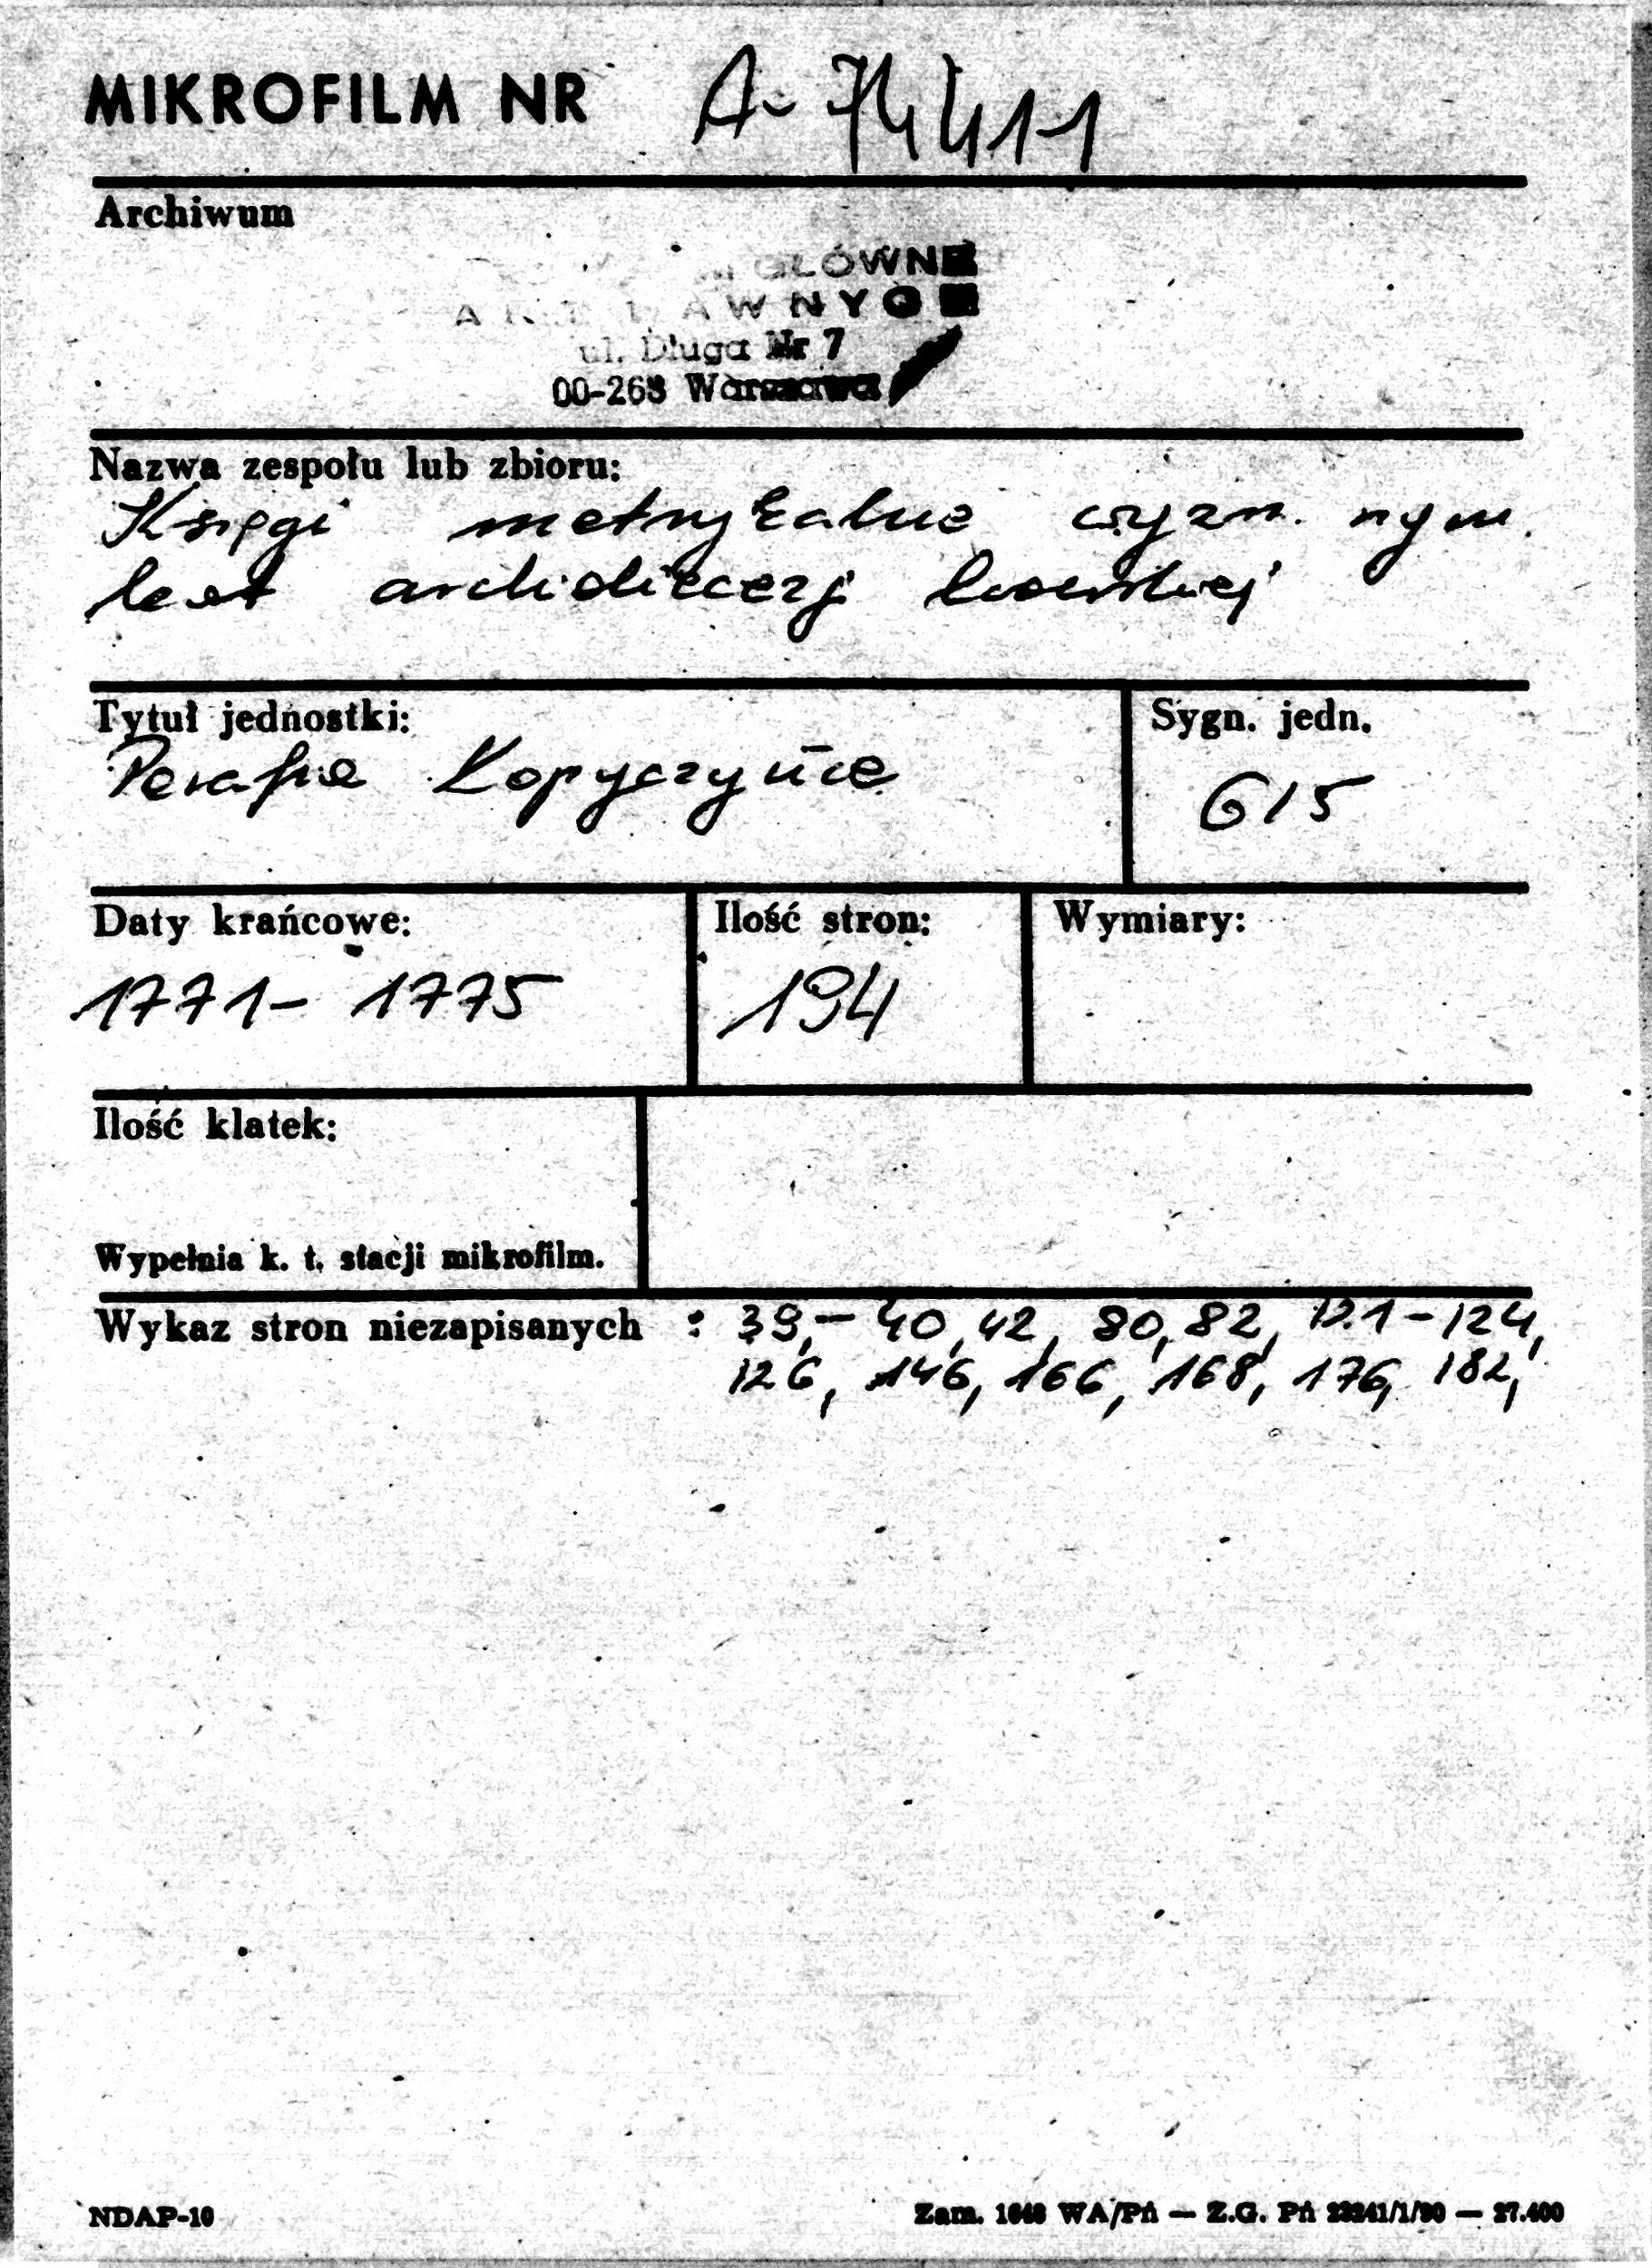 MIKROFILM NR A-74411
Archiwum
GŁÓWNE
AKT DAWNYCH
ul. Długa Nr 7
00-263 Warszawa
Nazwa zespołu lub zbioru:
Księgi metrykalne wyzn. rzym.
kat archidiecezji lwowskiej
Tytuł jednostki:
Sygn. jedn.
Parafia Kopyczyńce
615
Daty krańcowe:
Ilość stron:
Wymiary:
1771- 1775
194
Ilość klatek:
Wypełnia k. t. stacji mikrofilm.
Wykaz stron niezapisanych : 39,- 40, 42, 80, 82, 121-124,
126, 146, 166, 168, 176, 182,
NDAP-10
Zam. 1648 WA/Pń — Z.G. Pń /1/90 — 27.400